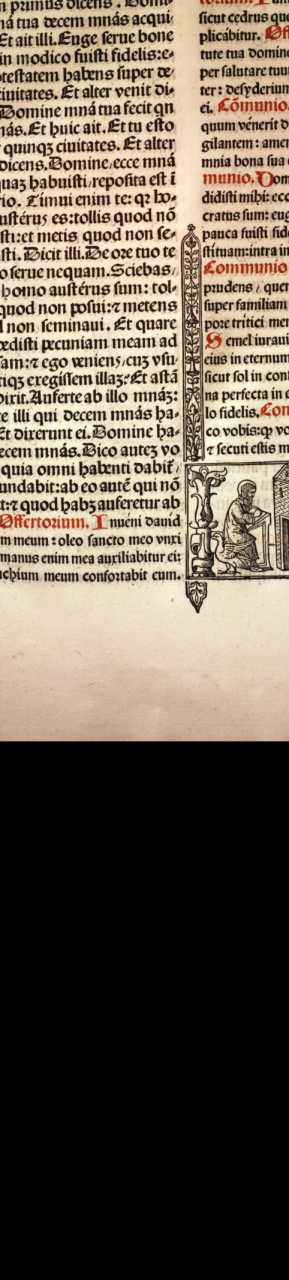 n primus dicens. Domi-
ná tua decem mnás acqui
Et ait illi. Euge serue bone
in modico fuisti fidelis: e-
otestatem habens super de-
ciuitates. Et alter venit di-
Domine mná tua fecit qn
nás. Et huic ait. Et tu esto
quinqꝫ ciuitates. Et alter
dicens. Domine/ ecce mná
quaꝫ habuisti/ reposita est ī
rio. Timui enim te: qꝛ ho-
ustérus es: tollis quod nō
sti: et metis quod non se-
sti. Dicit illi. De ore tuo te
o serue nequam. Sciebas/
homo austérus sum: tol-
quod non posui: ⁊ metens
d non seminaui. Et quare
dedisti pecuniam meam ad
sam: ⁊ ego veniens/ cuꝫ vsu-
tiqꝫ exegissem illaꝫ: Et astā
dixit. Auferte ab illo mnáꝫ:
te illi qui decem mnás ha-
Et dixerunt ei. Domine ha-
decem mnás. Dico auteꝫ vo
quia omni habenti dabit͛/
undabit: ab eo autē qui nō
t: ⁊ quod habꝫ auferetur ab
Offertorium. Inuéni dauid
m meum: oleo sancto meo vnxi
manus enim mea auxiliabitur ei:
achium meum confortabit eum.
sicut cedrus que
plicábitur. Off
tute tua domine
per salutare tuu
ter: desyderium
ei. Cōmunio.
quum vénerit d
gilantem: amen
mnia bona sua
munio. Dom
didisti mihi: ecc
cratus sum: eug
pauca fuisti fide
stituam: intra in
Communio
prudens/ quem
super familiam
pore tritici men
Semel iuraui
eius in eternum
sicut sol in conf
na perfecta in e
lo fidelis. Com
co vobis: qꝙ vo
⁊ secuti estis m